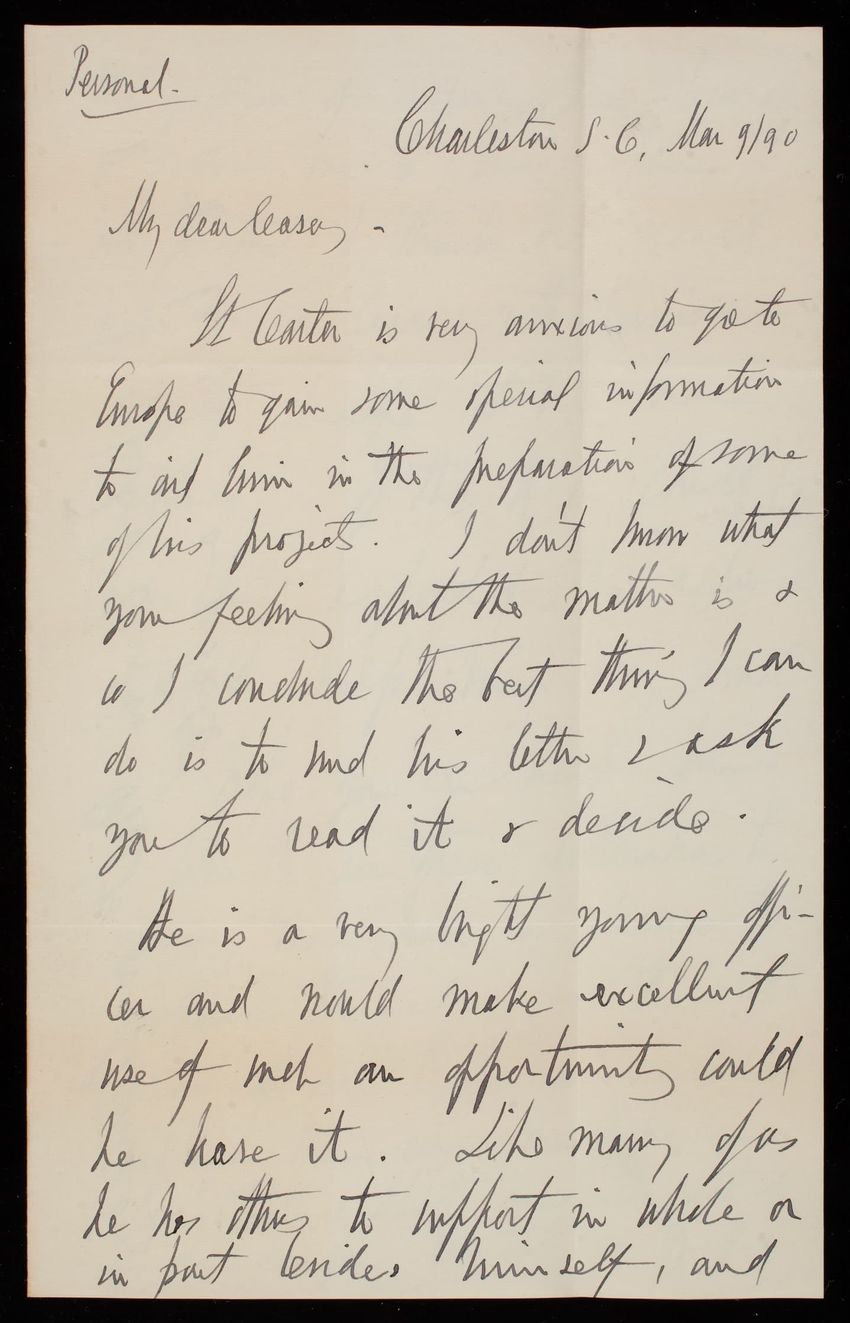 Personal.
Charleston S.C, Mar 9/90
My dear Casey -
Lt Carter is very anxious to go to
Europe to gain some special information
to aid him in the preparation of some
of his projects. I don't know what
your feeling about the matter is &
so I conclude the best thing I can
do is to send his letter & ask
you to read it & decide.
He is a very bright young offi-
cer and would make excellent
use of such an opportunity could
he have it. Like many of us
he has others to support in whole or
in part besides himself, and